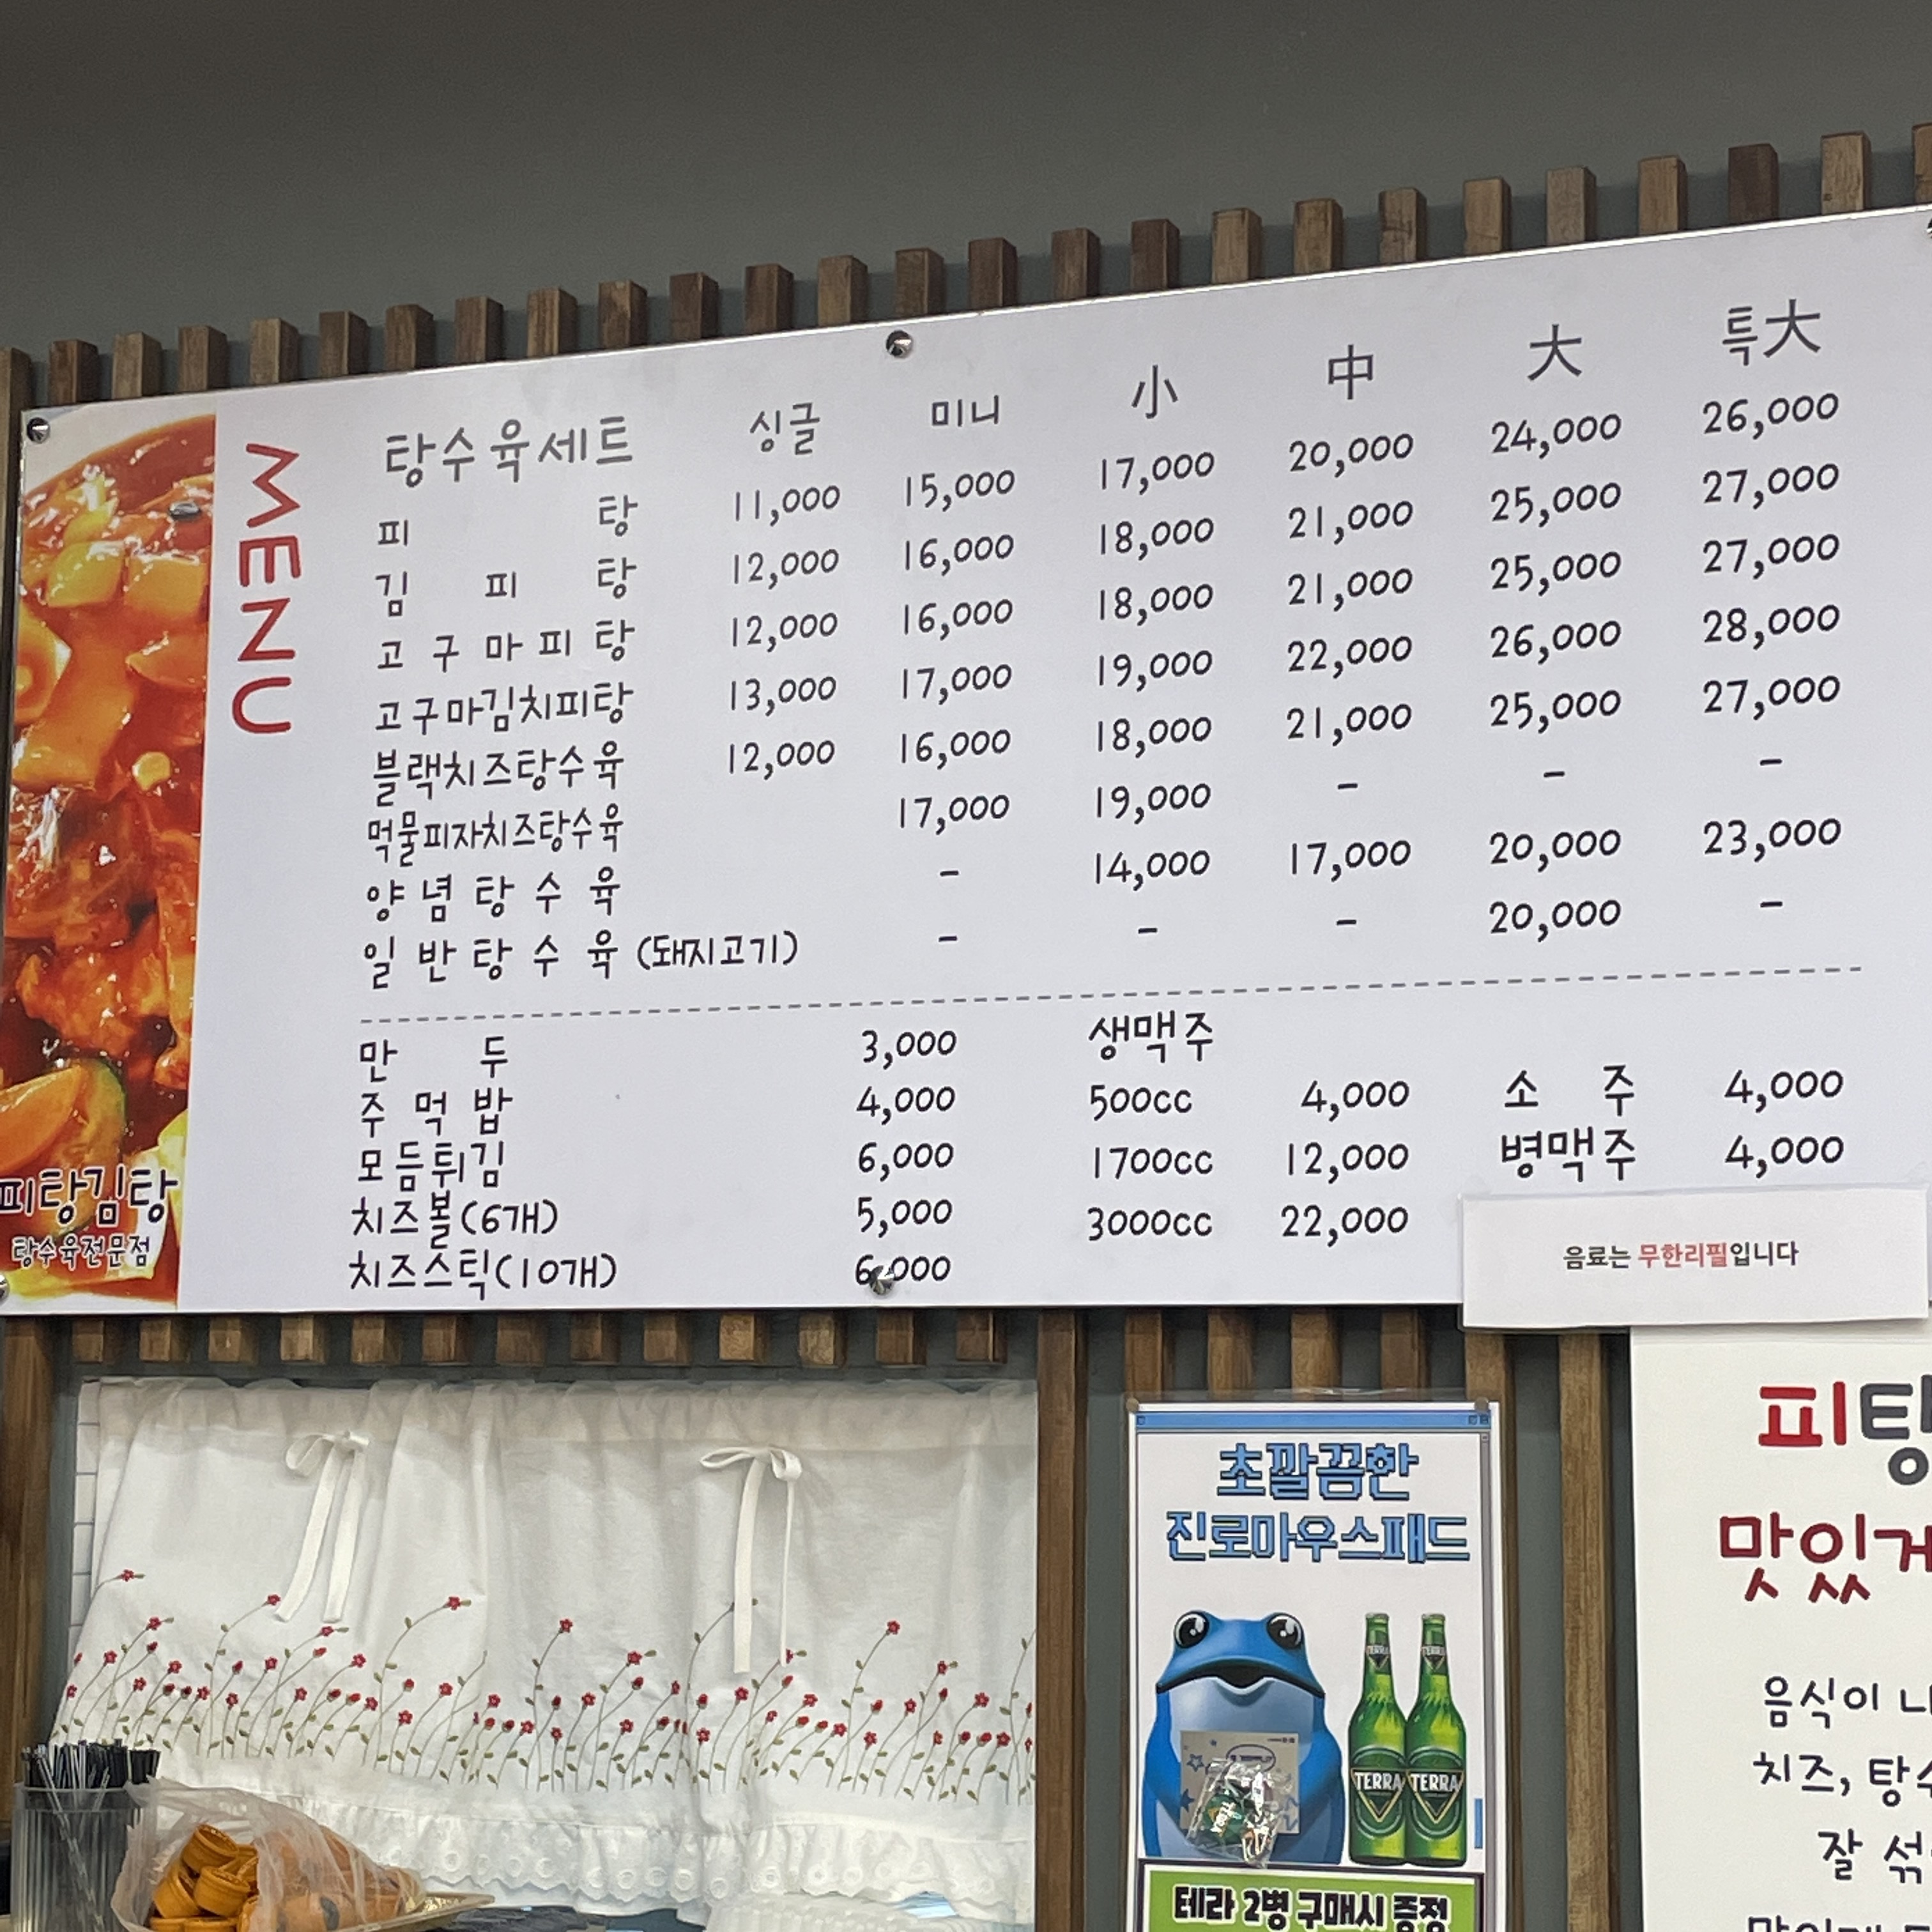 MENU
탕수육세트 싱글 미니 小 中 大 특大
피탕 11,000 15,000 17,000 20,000 24,000 26,000
김피탕 12,000 16,000 18,000 21,000 25,000 27,000
고구마피탕 12,000 16,000 18,000 21,000 25,000 27,000
고구마김치피탕 13,000 17,000 19,000 22,000 26,000 28,000
블랙치즈탕수육 12,000 16,000 18,000 21,000 25,000 27,000
먹물피자치즈탕수육 17,000 19,000 - - -
양념탕수육 - 14,000 17,000 20,000 23,000
일반탕수육(돼지고기) - - - 20,000 -
만두 3,000
주먹밥 4,000
모듬튀김 6,000
치즈볼(6개) 5,000
치즈스틱(10개) 6,000
생맥주
500cc 4,000
1700cc 12,000
3000cc 22,000
소주 4,000
병맥주 4,000
음료는 무한리필입니다
피탕김탕
탕수육전문점
초깔끔한
진로마우스패드
TERRA TERRA
테라 2병 구매시 증정
피탕
맛있게
음식이
치즈,
잘